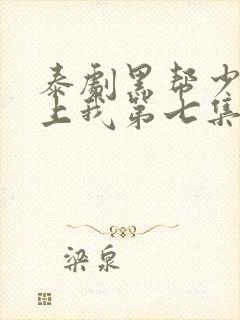 泰劇黑帮少
上我第七集
梁泉